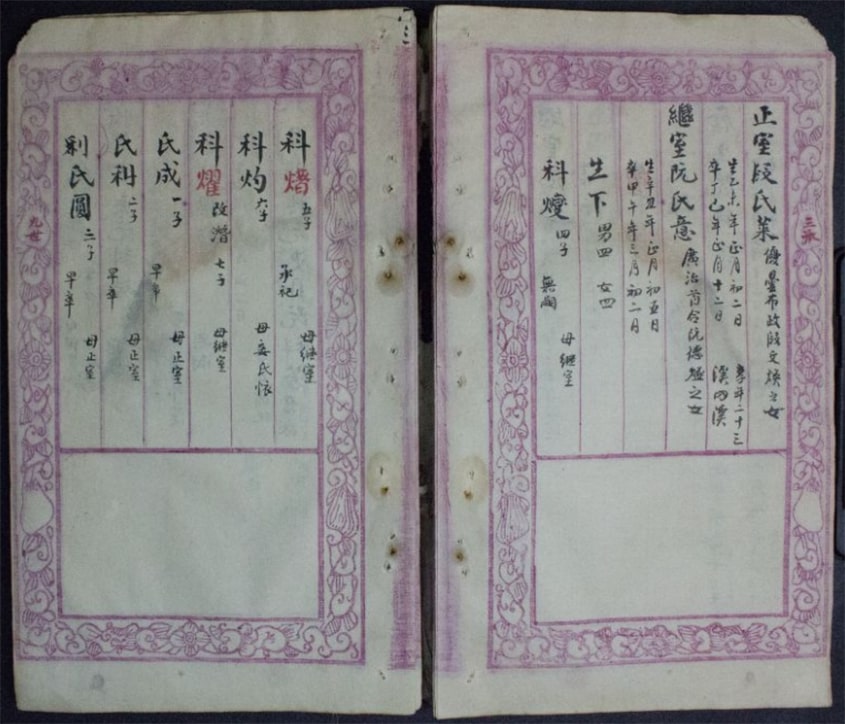 正室段氏菜 優臺布政段文煥之女
生乙未年正月初二日 享年二十三
卒丁巳年正月十二日 漢內漢
繼室阮氏意 廣治首令阮德之女
生辛丑年正月初五日
卒甲午年三月初二日
生下 男四 女四
科㷮 四子 無嗣 母繼室
三派
科㸅 五子 承祀 母繼室
科灼 六子 母妾氏懷
科耀 改潛 七子 母繼室
氏成 一子 早卒 母正室
氏利 二子 早卒 母正室
列氏圓 三子 早卒 母正室
九世